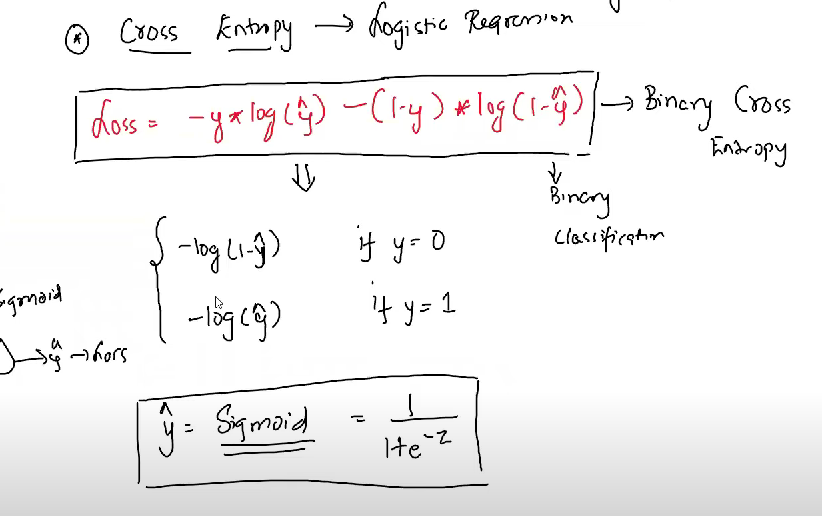 * Cross Entropy → Logistic Regression
Loss = -y * log(ŷ) - (1-y) * log(1-ŷ) → Binary Cross
Entropy
⇓ ↓
Binary
Classification
{ -log(1-ŷ) if y = 0
-log(ŷ) if y = 1
Sigmoid
→ ŷ → Loss
ŷ = Sigmoid = 1 / 1+e^-z